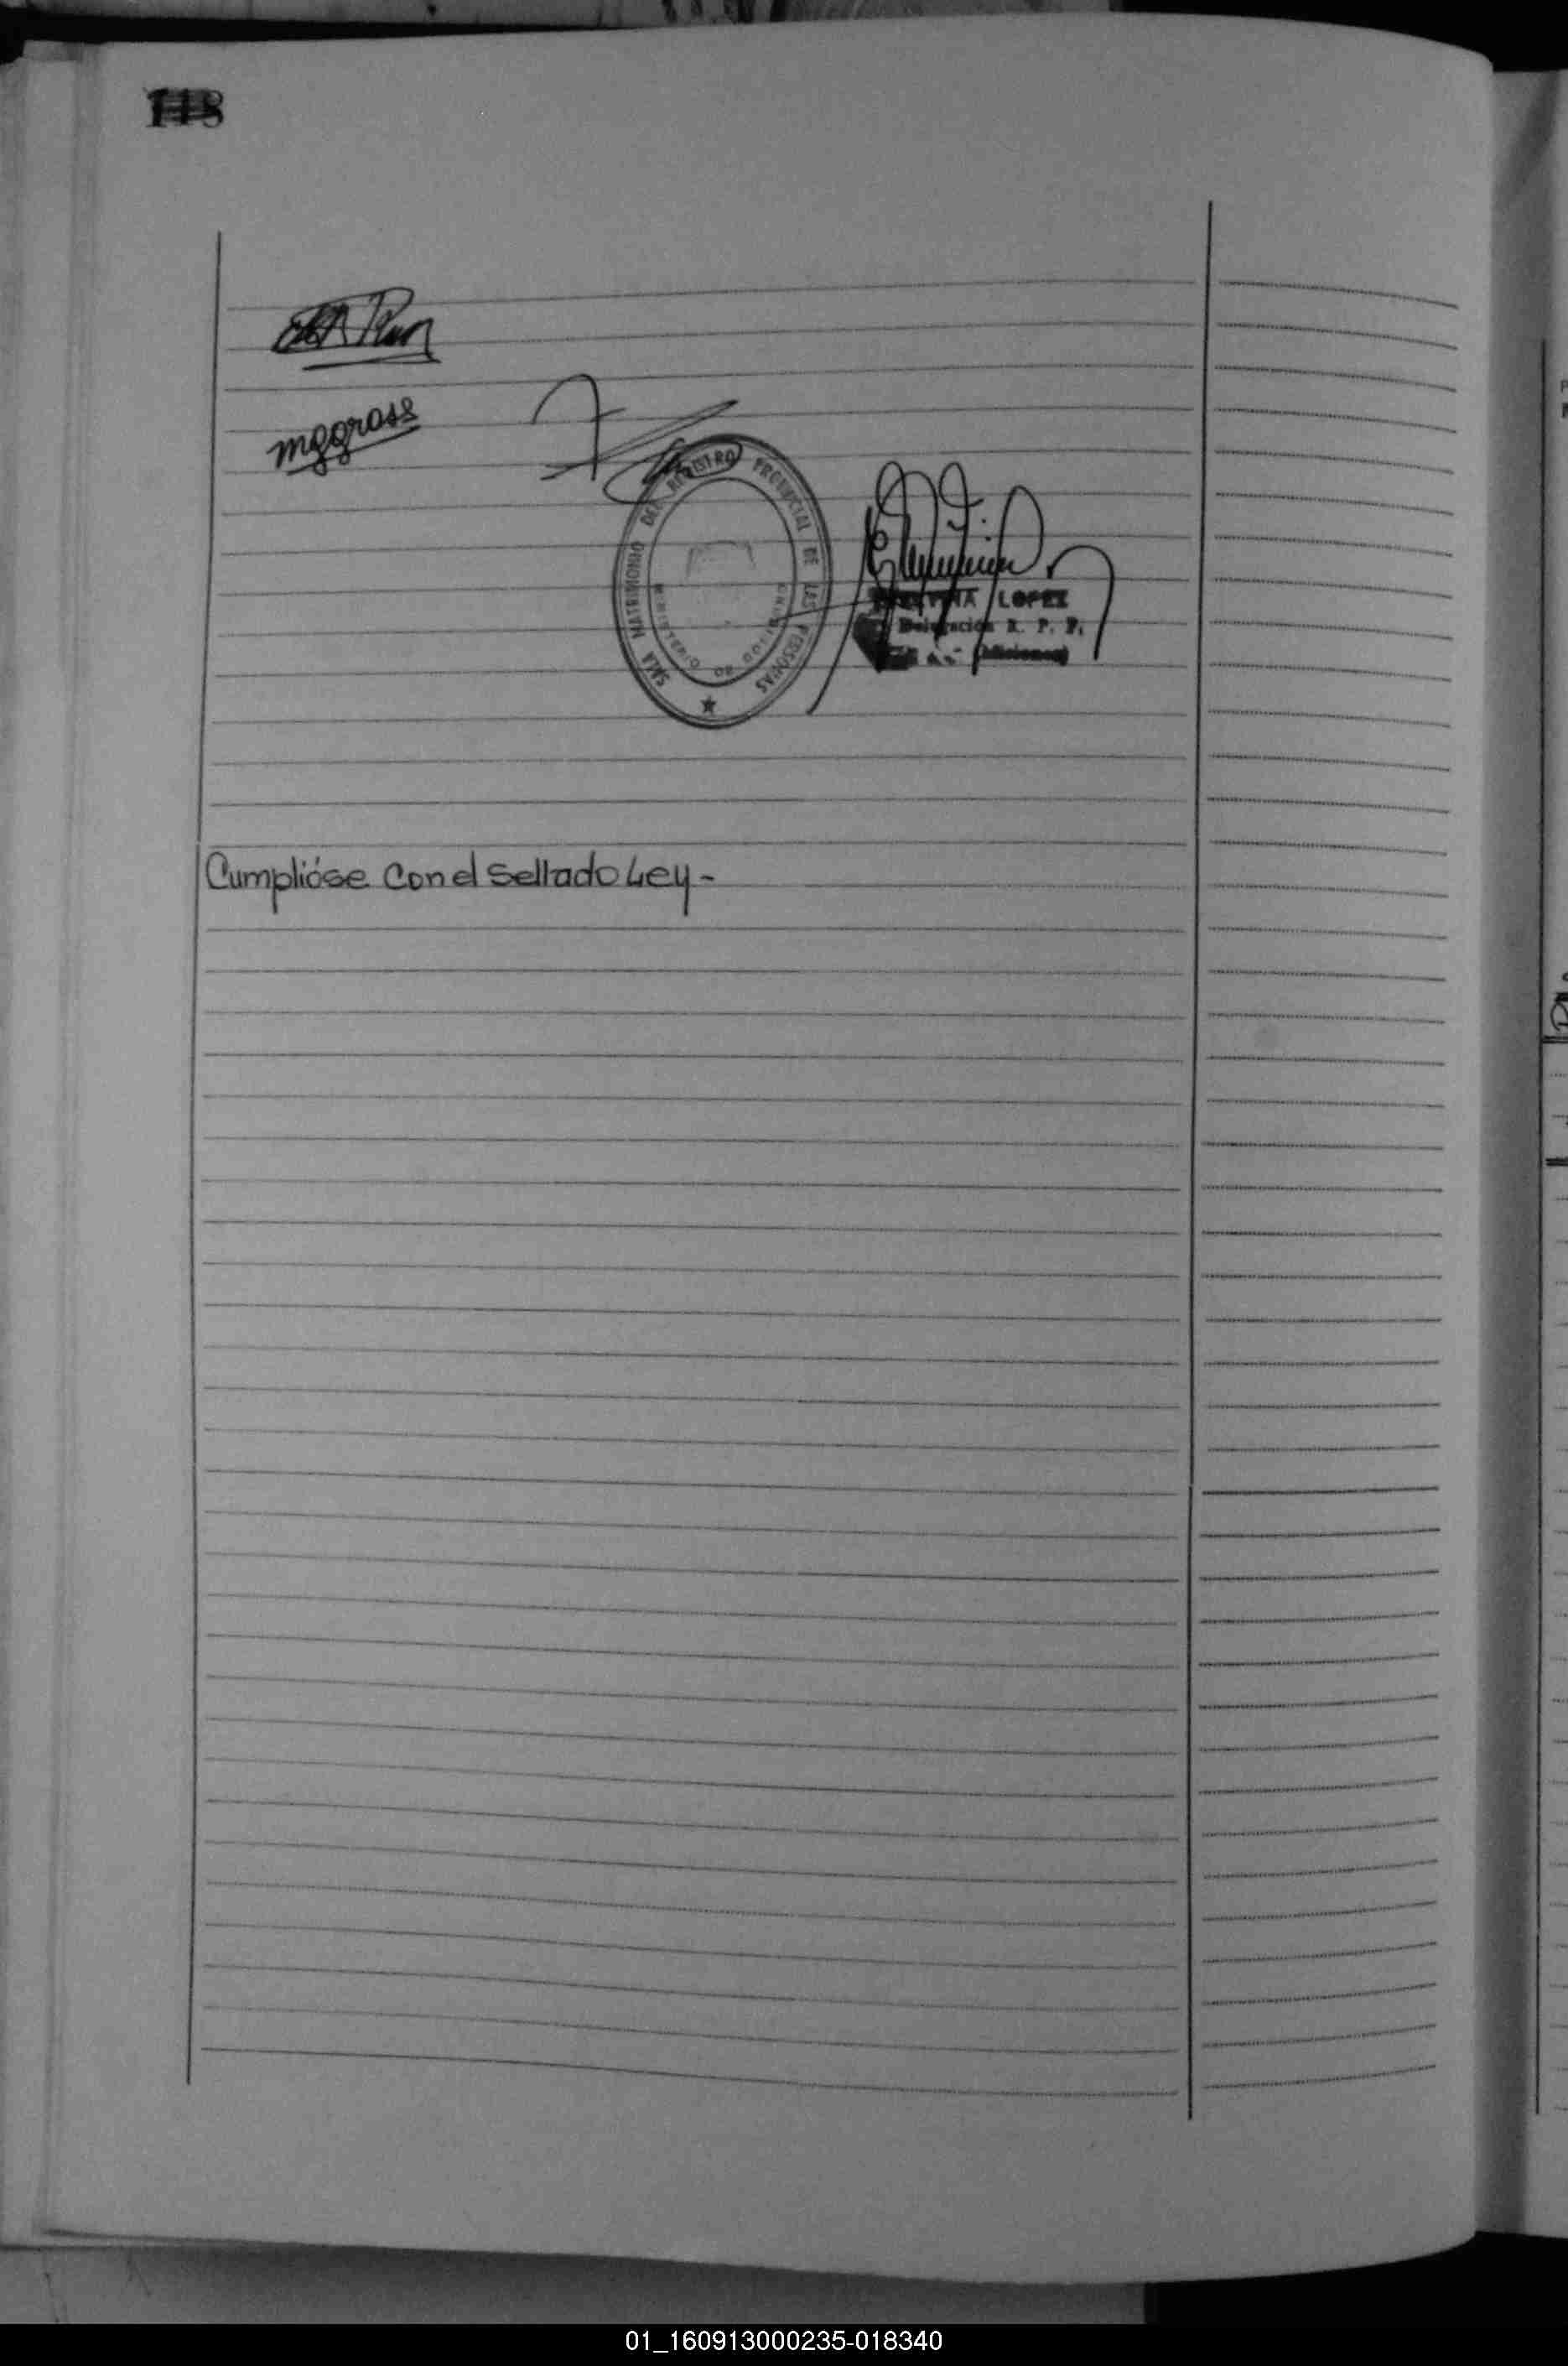 118
mggross
SALA MATRIMONIO DEL REGISTRO PROVINCIAL DE LAS PERSONAS
MINISTERIO DE GOBIERNO
LOPEZ
Delegación R. P. P.
(Misiones)
Cumplióse Con el Sellado Ley -
01_160913000235-018340